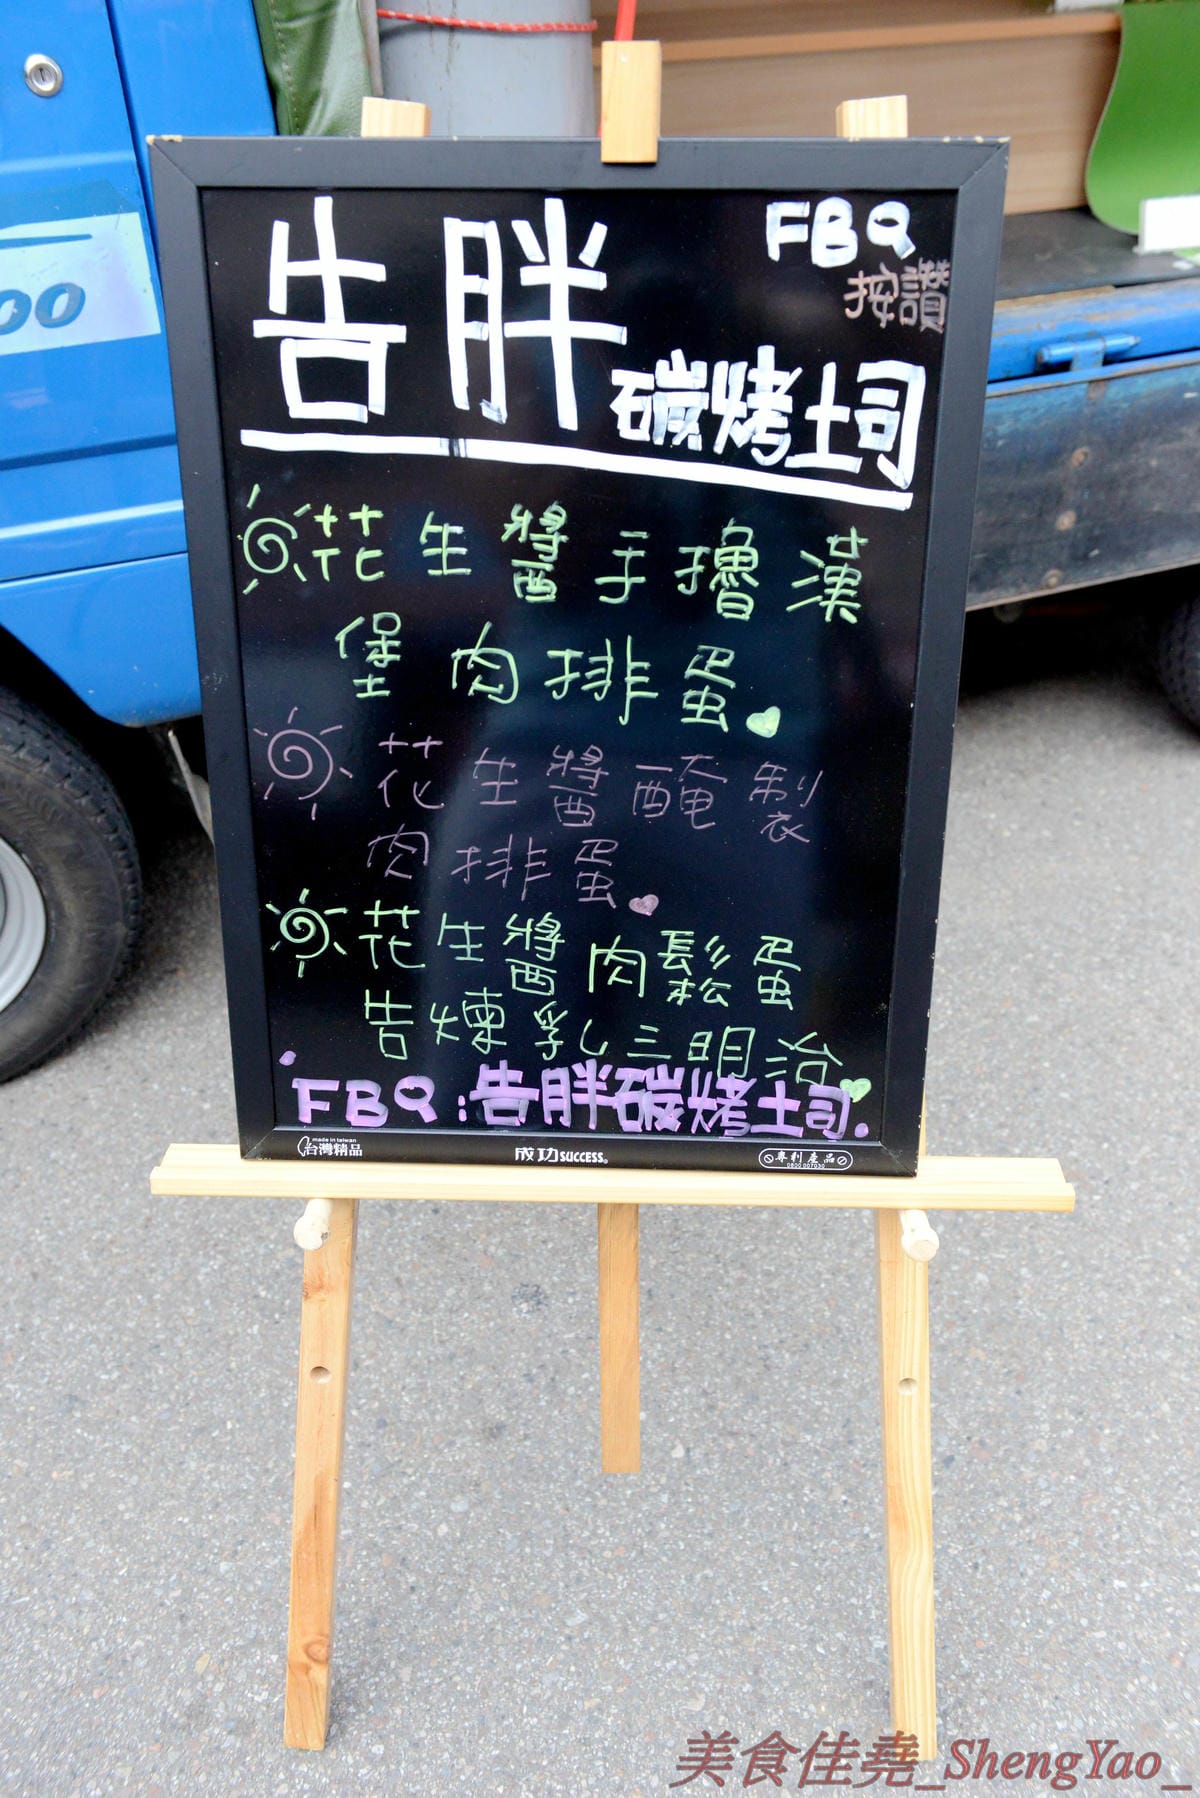 告胖
FBQ
按讚
碳烤土司
花生醬手擼漢
堡肉排蛋
花生醬醃製
肉排蛋
花生醬肉鬆蛋
告煉乳三明治
FBQ:告胖碳烤土司.
made in taiwan
台灣精品
成功SUCCESS
專利產品
0800 007030
00
美食佳堯_ShengYao_